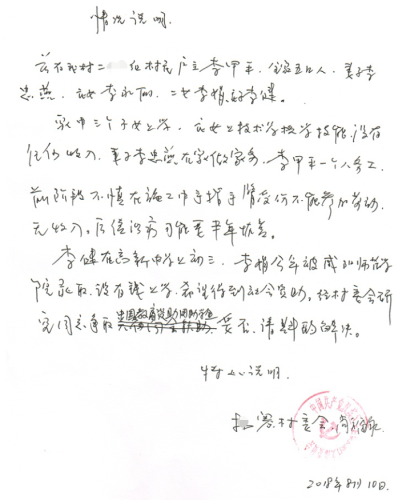 情况说明.
兹有我村二 组村民户主李甲平,全家五口人,妻子李
忠燕,长女李永丽,二女李娟,子李健。
家中三个子女上学,长女上技术学校学技能,没有
任何收入,妻子李忠燕在家做家务,李甲平一个人务工,
前阶段不慎在施工中手指手臂受伤不能参加劳动,
无收入,医信治病可能至半年恢复。
李健在高新中学上初三,李娟今年被咸阳师范学
院录取,没有钱上学,希望得到社会资助。经村委会研
究同意争取 妥否,请批示解决。
特此说明.
村委会
2018年8月10日.